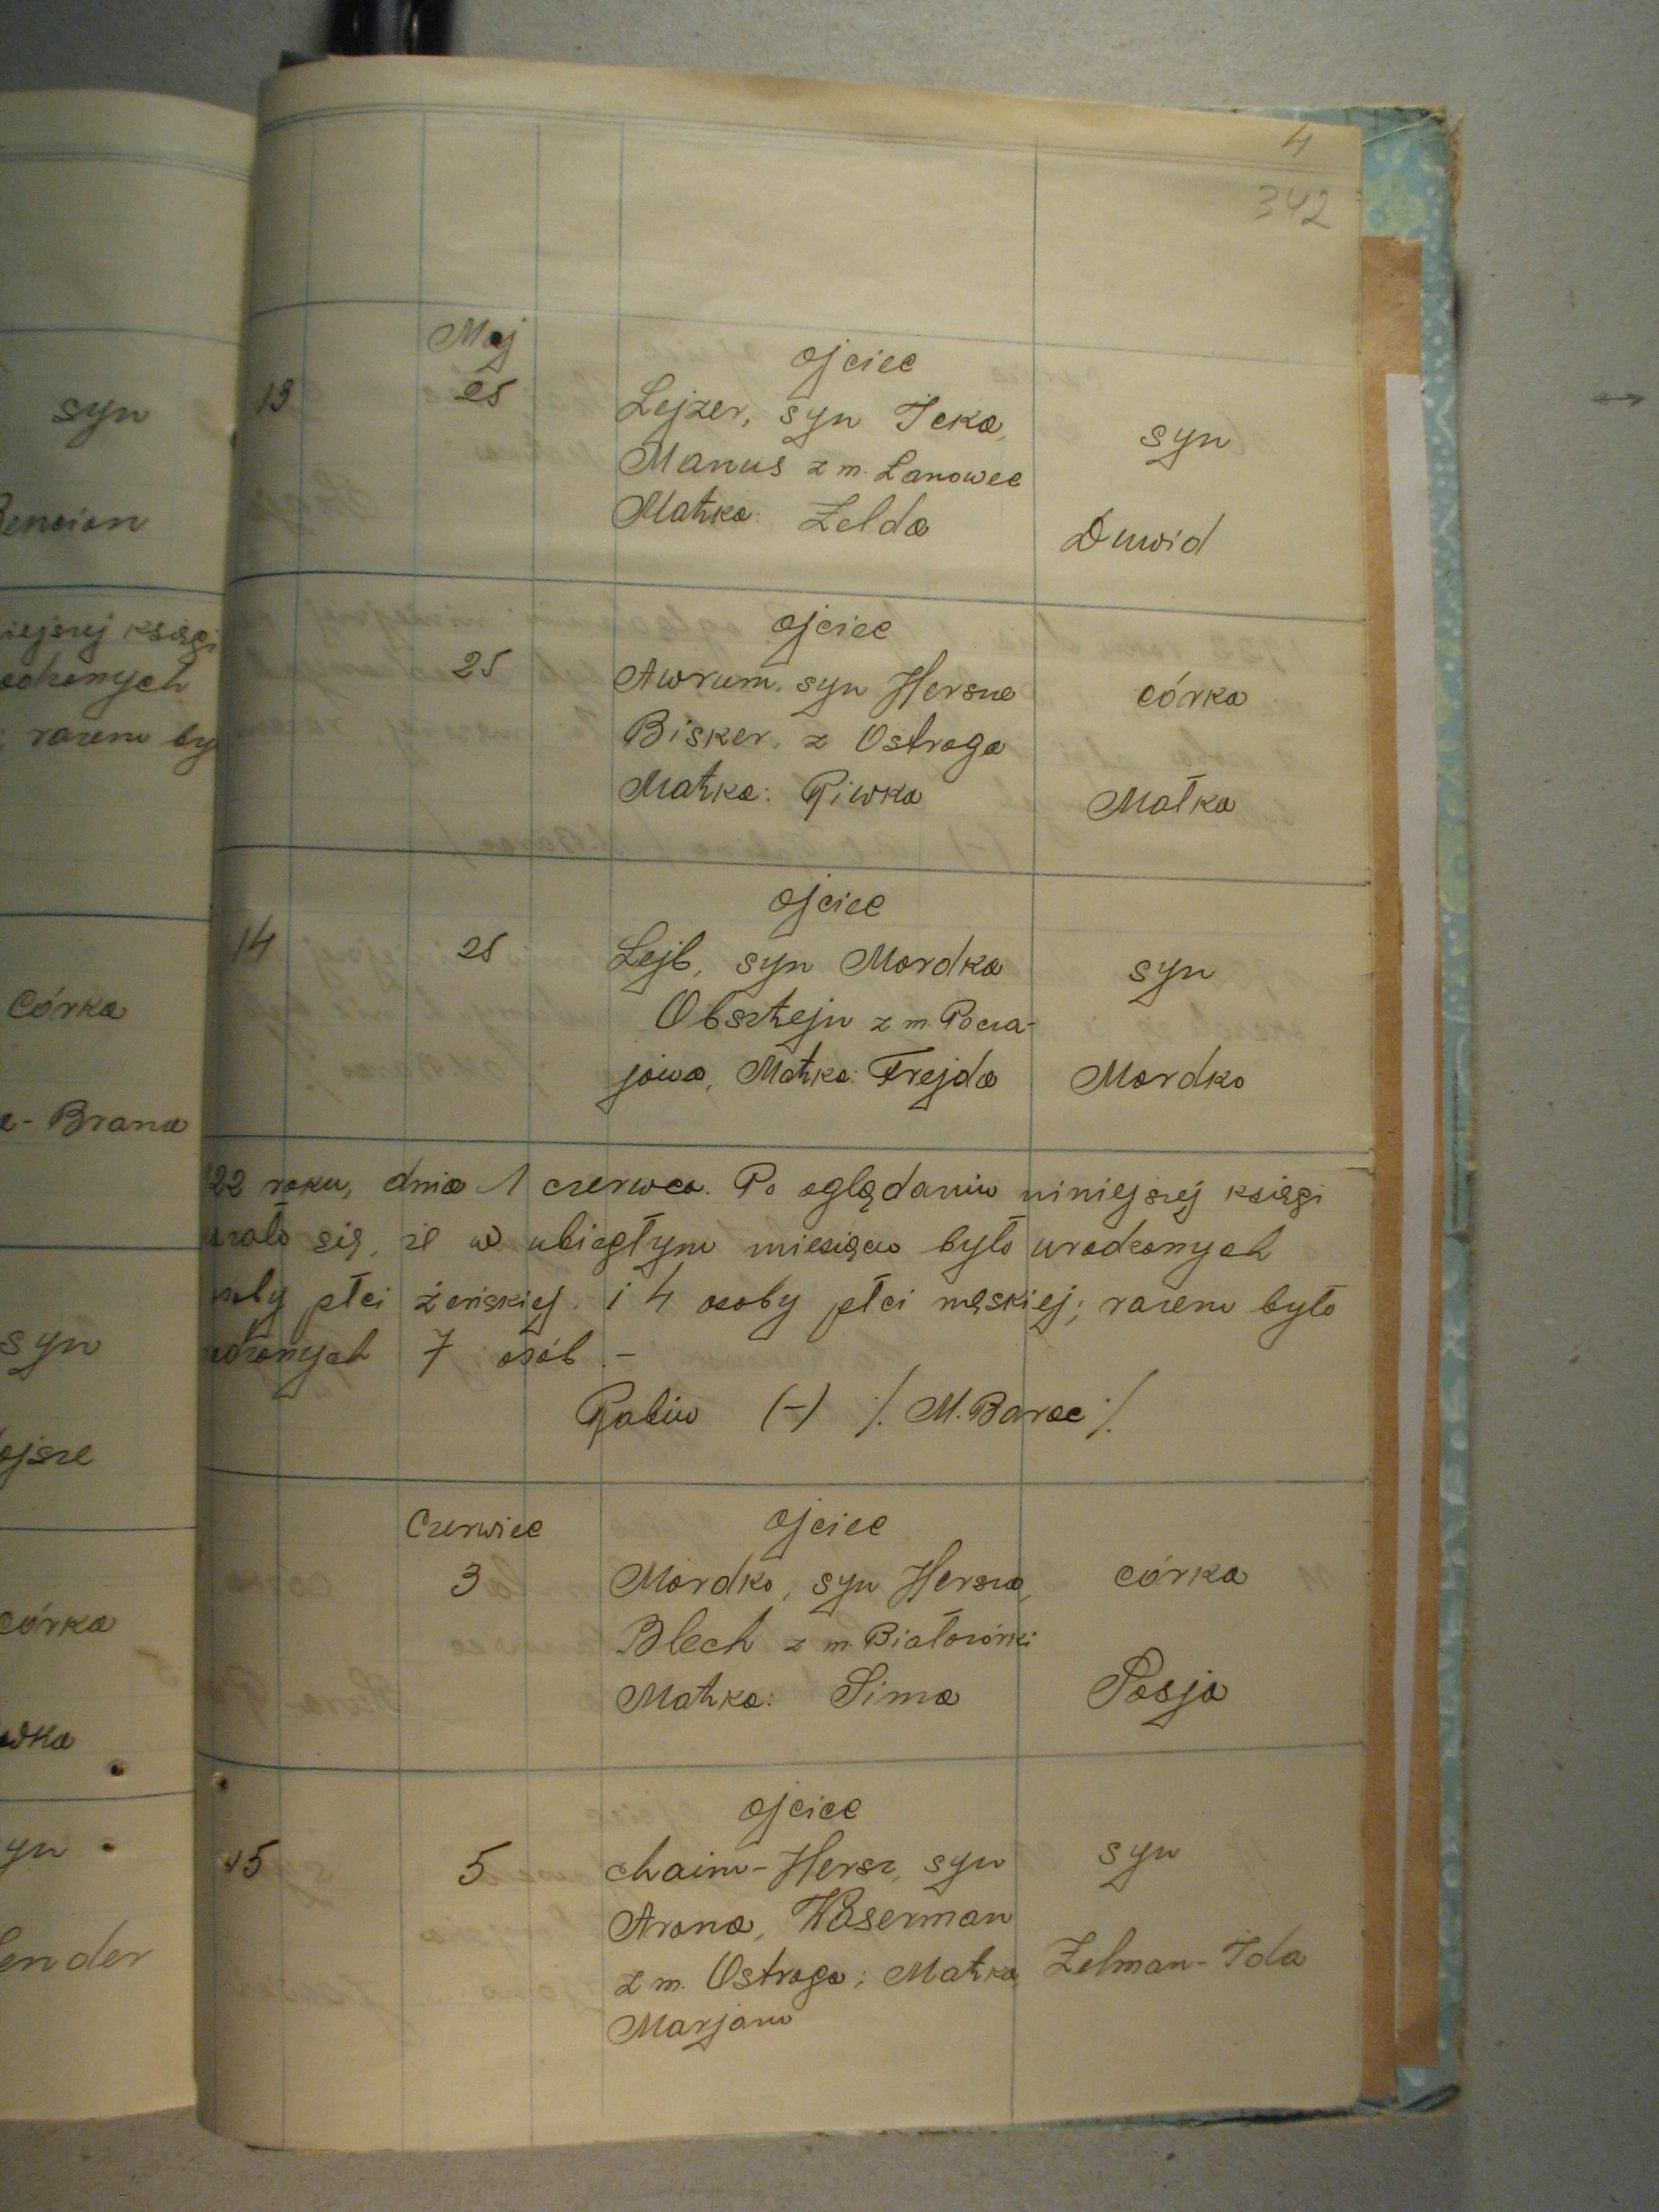 4
342
syn
Maj
ojciec
13
25
Lejzer, syn Icka,
syn
Manus z m. Lanowec
Matka: Zelda
Duwid
iejszej księgi
odzonych
razem by
ojciec
25
Awrum, syn Hersza
córka
Bisker, z Ostroga
Matka: Riwka
Małka
ojciec
14
25
Lejb, syn Mordka
syn
Obsztejn z m. Pocza-
jowa, Matka: Frejda
Mordko
Córka
- Brana
22 roku, dnia 1 czerwca. Po oglądaniu niniejszej księgi
się, że w ubiegłym miesiącu było urodzonych
płci żeńskiej i 4 osoby płci męskiej; razem było
odzonych 7 osób.-
Rabin (-) /. M. Barac /.
syn
ojsze
Czerwiec
ojciec
3
Mordko, syn Hersza,
córka
Blech z m. Białozórki
Matka: Sima
Pesja
córka
ojciec
15
5
Chaim-Hersz, syn
syn
Arona, Waserman
z m. Ostroga; Matka,
Zelman-Ida
Marjam
yn
ender